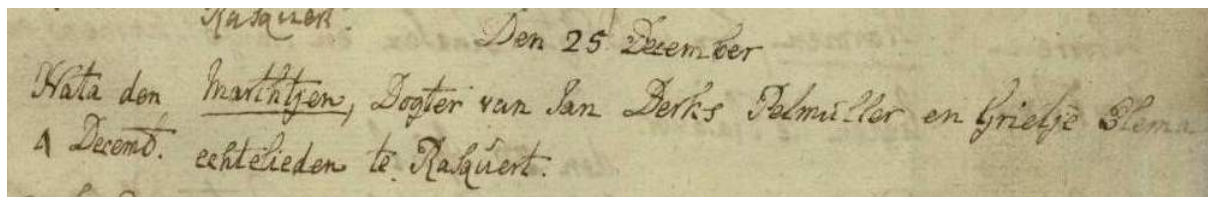 Rasquert.
Den 25 December
Nata den Marchtjen, Dogter van Jan Derks Pelmuller en Grietje
Decemb. echtelieden te Rasquert.